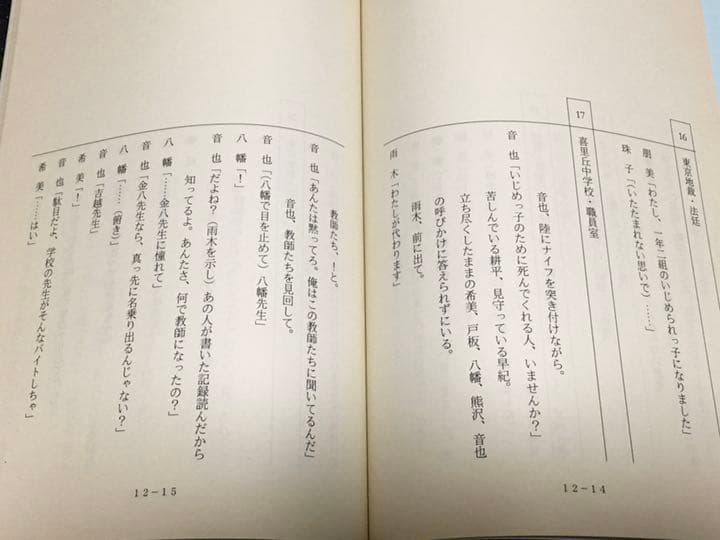 16 東京地裁・法廷
朋 美「わたし、一年二組のいじめられっ子になりました」
珠 子「(いたたまれない思いで)……」
17 喜里丘中学校・職員室
音也、陸にナイフを突き付けながら。
音 也「いじめっ子のために死んでくれる人、いませんか?」
苦しんでいる耕平、見守っている早紀。
立ち尽くしたままの希美、戸板、八幡、熊沢、音也
の呼びかけに答えられずにいる。
雨木、前に出て。
雨 木「わたしが代わります」
12-14
教師たち、!と。
音 也「あんたは黙ってろ。俺はこの教師たちに聞いてるんだ」
音也、教師たちを見回して。
音 也「(八幡で目を止めて)八幡先生」
八 幡「!」
音 也「だよね?(雨木を示し)あの人が書いた記録読んだから
知ってるよ。あんたさ、何で教師になったの?」
八 幡「……金八先生に憧れて」
音 也「金八先生なら、真っ先に名乗り出るんじゃない?」
八 幡「……(俯き)」
音 也「吉越先生」
希 美「!」
音 也「駄目だよ、学校の先生がそんなバイトしちゃ」
希 美「……はい」
12-15